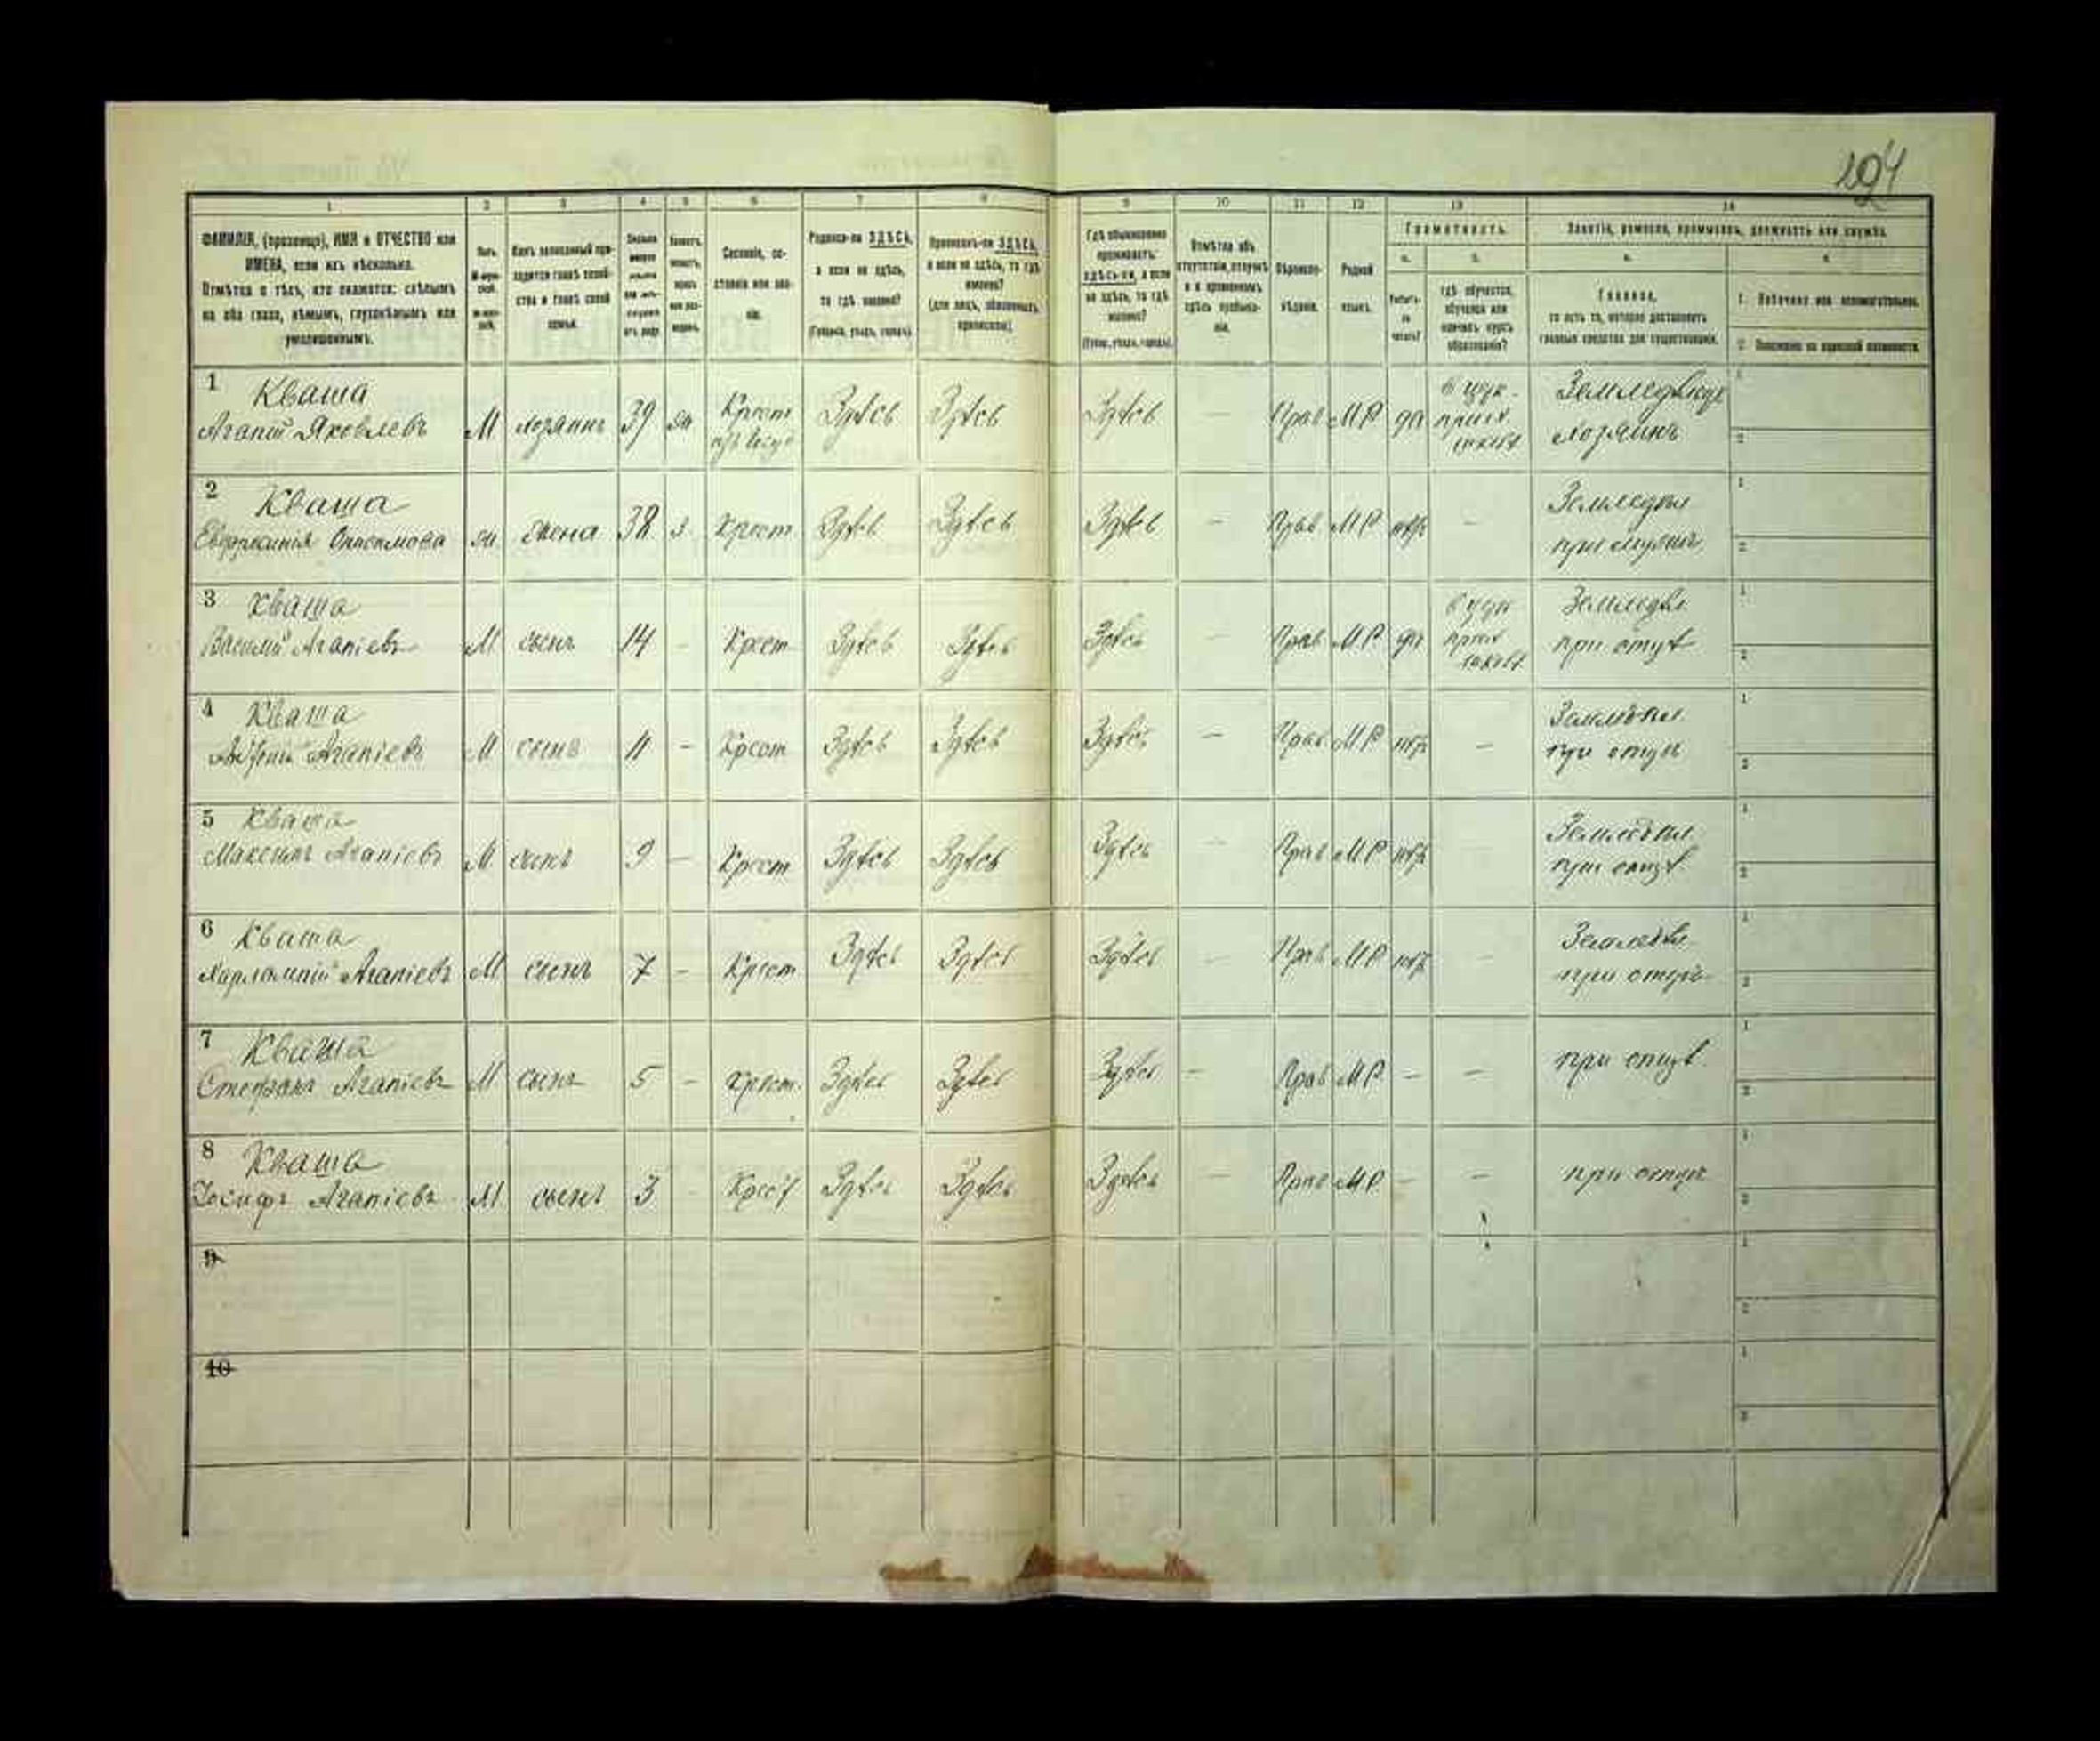 294
1 2 3 4 5 6 7 8 9 10 11 12 13 14
ФАМИЛІЯ, (прозвище), ИМЯ и ОТЧЕСТВО или
ИМЕНА, если ихъ нѣсколько.
Отмѣтка о тѣхъ, кто окажется: слѣпымъ
на оба глаза, нѣмымъ, глухонѣмымъ или
умалишеннымъ.
Полъ.
Какъ записанный при-
ходится главѣ хозяй-
ства и главѣ своей
семьи.
Сословіе, со-
стояніе или зва-
ніе.
Родился-ли ЗДѢСЬ,
а если не здѣсь,
то гдѣ именно?
(Губернія, уѣздъ, городъ)
Приписанъ-ли ЗДѢСЬ,
а если не здѣсь, то гдѣ
именно?
(для лицъ, обязанныхъ
припискою)
Гдѣ обыкновенно
проживаетъ:
здѣсь-ли, а если
не здѣсь, то гдѣ
именно?
(Губер., уѣздъ, городъ)
Отмѣтка объ
отсутствіи, отлучкѣ
и о временномъ
здѣсь пребыва-
ніи.
Вѣроиспо-
вѣданіе.
Родной
языкъ.
Грамотность.
а. б.
Умѣетъ-
ли
читать?
гдѣ обучается,
обучался или
кончилъ курсъ
образованія?
Занятіе, ремесло, промыселъ, должность или служба.
Главное,
то есть то, которое доставляетъ
главныя средства для существованія.
1. Побочное или вспомогательное.
2. Положеніе по воинской повинности.
1 Кваша
Агапій Яковлевъ М хозяинъ 39 ж Крест Здѣсь Здѣсь Здѣсь — Прав М Р да Земледѣлецъ
хозяинъ
2 Кваша
Евфросинія Онисимова ж жена 38 з Крест Здѣсь Здѣсь Здѣсь — Прав. М Р нѣтъ — Земледѣл
при мужѣ
3 Кваша
Василій Агапіевъ М сынъ 14 - Крест Здѣсь Здѣсь Здѣсь — Прав М.Р. да Земледѣл
при отцѣ
4 Кваша
Агапіевъ М сынъ 11 - Крест Здѣсь Здѣсь Здѣсь — Прав М Р нѣтъ — Земледѣл.
при отцѣ
5 Кваша
Максимъ Агапіевъ М сынъ 9 — Крест Здѣсь Здѣсь Здѣсь — Прав М Р нѣтъ Земледѣл
при отцѣ
6 Кваша
Харлампій Агапіевъ М сынъ 7 - Крест Здѣсь Здѣсь Здѣсь — Прав М Р нѣтъ — Земледѣл.
при отцѣ
7 Кваша
Стефанъ Агапіевъ М сынъ 5 - Крест. Здѣсь Здѣсь Здѣсь — Прав М Р. — — при отцѣ
8 Кваша
Іосифъ Агапіевъ М сынъ 3 - Крест Здѣсь Здѣсь Здѣсь — Прав М Р — — при отцѣ
9
10